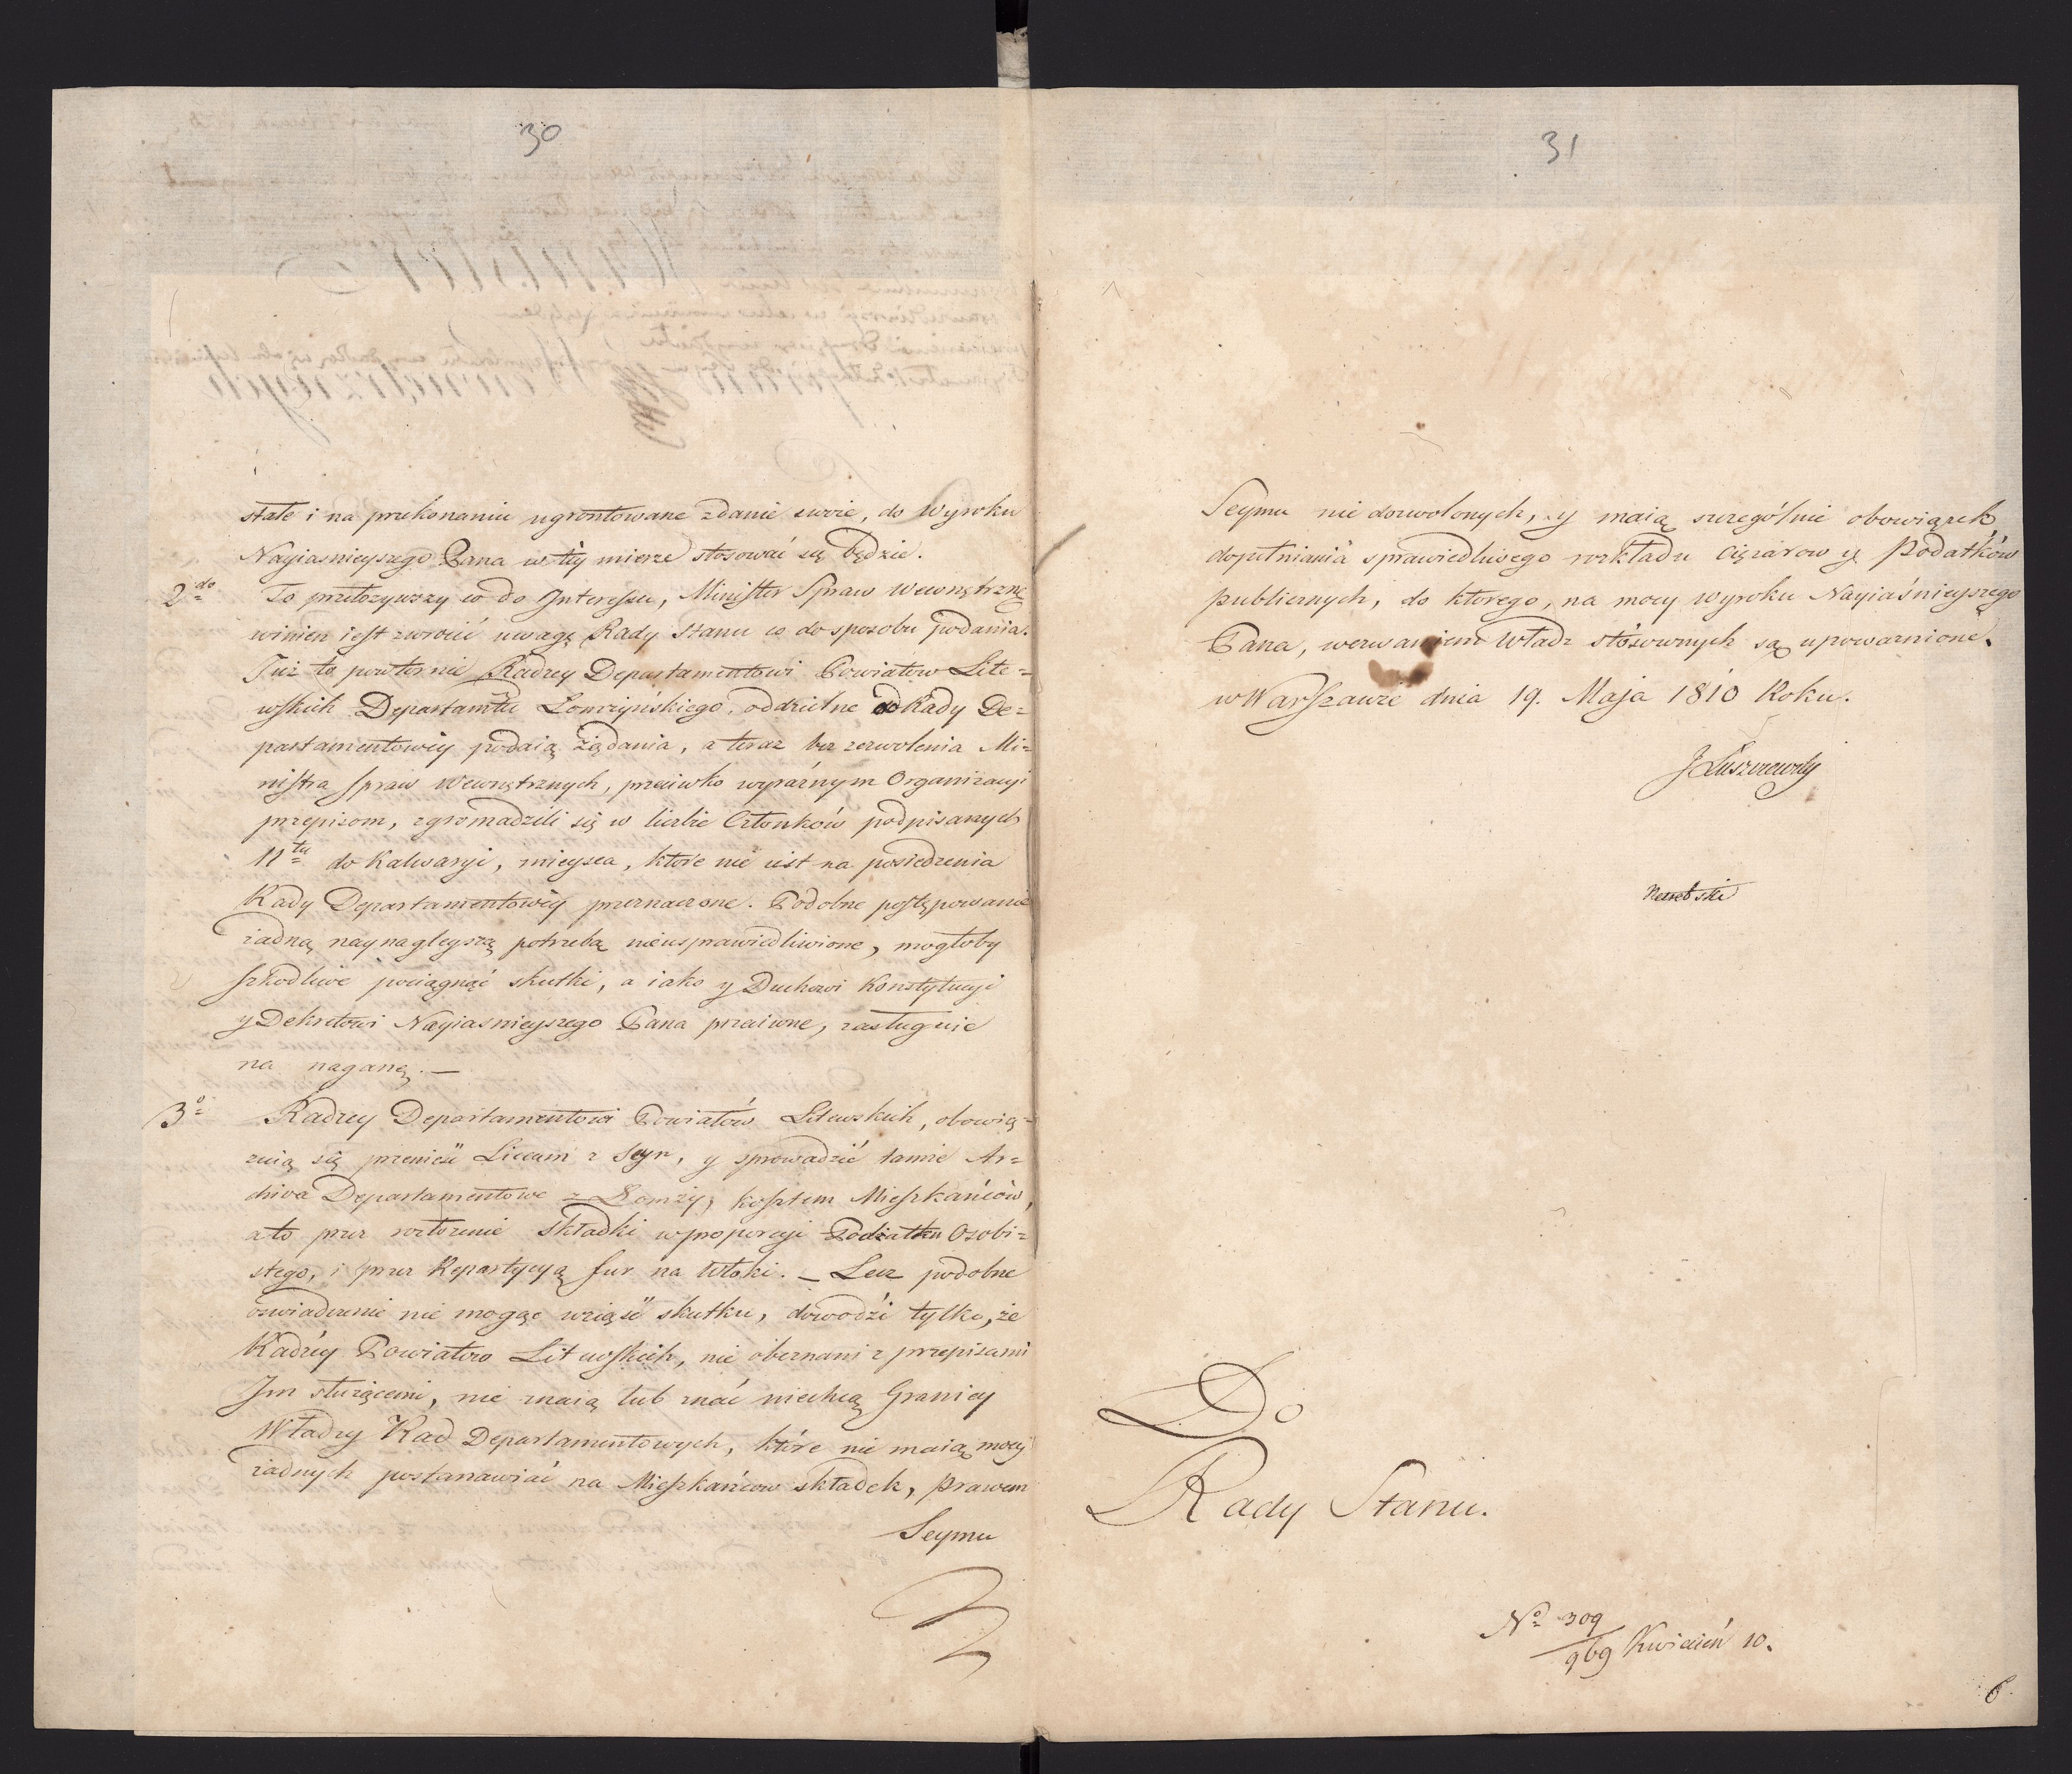 30
stałe i na przekonaniu ugrontowane zdanie swoie, do Wyroku
Nayiasnieyszego Pana w tey mierze stosować się będzie.
2do To przełożywszy co do Interessu, Minister Spraw Wewnętrznę
winien iest zwrócić uwagę Rady Stanu co do sposobu podania.
Już to powtornie Radzcy Departamentowi Powiatow Lite=
wskich Departamtu Łomżyńskiego, oddzielne od Rady De=
partamentowey podaią żądania, a teraz bez zezwolenia Mi=
nistra Spraw Wewnętrznych, przeciwko wyraźnym Organizacyi
przepisom, zgromadzili się w liczbie Członków podpisanych
11tu do Kalwaryi, mieysca, które nie iest na posiedzenia
Rady Departamentowey przeznaczone. Podobne postępowanie
żadną naynagleyszą potrzebą nieusprawiedliwione, mogłoby
szkodliwe pociągnąć skutki, a iako y Duchowi Konstytucyi
y Dekretowi Nayiasnieyszego Pana przeciwne, zasługuie
na naganę. —
3o Radzcy Departamentowi Powiatów Litewskich, obowią=
zuią się przenieść Liceum z Seyn, y sprowadzić tamże Ar=
chiva Departamentowe z Łomży, kosztem Mieszkańców,
a to przez złożenie składki w proporcyi Podatku Osobi=
stego, i przez Repartycyą fur na Włoki. — Lecz podobne
oświadczenie nie mogąc wziąść skutku, dowodzi tylko, że
Radzcy Powiatow Litewskich, nie obeznani z przepisami
Im służącemi, nie znaią lub znać niechcą Granicy
Władzy Rad Departamentowych, które nie maią mocy
żadnych postanawiać na Mieszkańcow składek, Prawem
Seymu
31
Seymu nie dozwolonych, y maią szczególnie obowiązek
dopełniania sprawiedliwego rozkładu Ciężarow y Podatków
publicznych, do ktorego, na mocy wyroku Nayiaśnieyszego
Pana, wezwaniem Władz stósownych są upoważnione.
w Warszawie dnia 19. Maja 1810 Roku.
J Łuszczewski
Do
Rady Stanu.
No 309
969 Kwiecień 10.
6